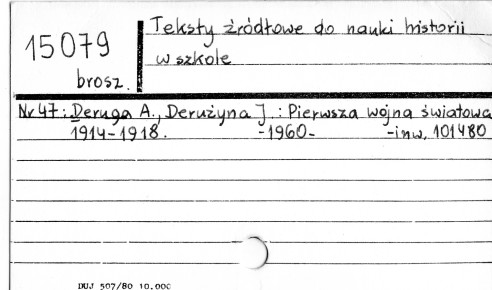 15079
brosz.
Teksty źródłowe do nauki historii
w szkole
Nr 47: Deruga A., Derużyna J.: Pierwsza wojna światowa
1914-1918. -1960- -inw. 101480
DUJ 507/80 10.000